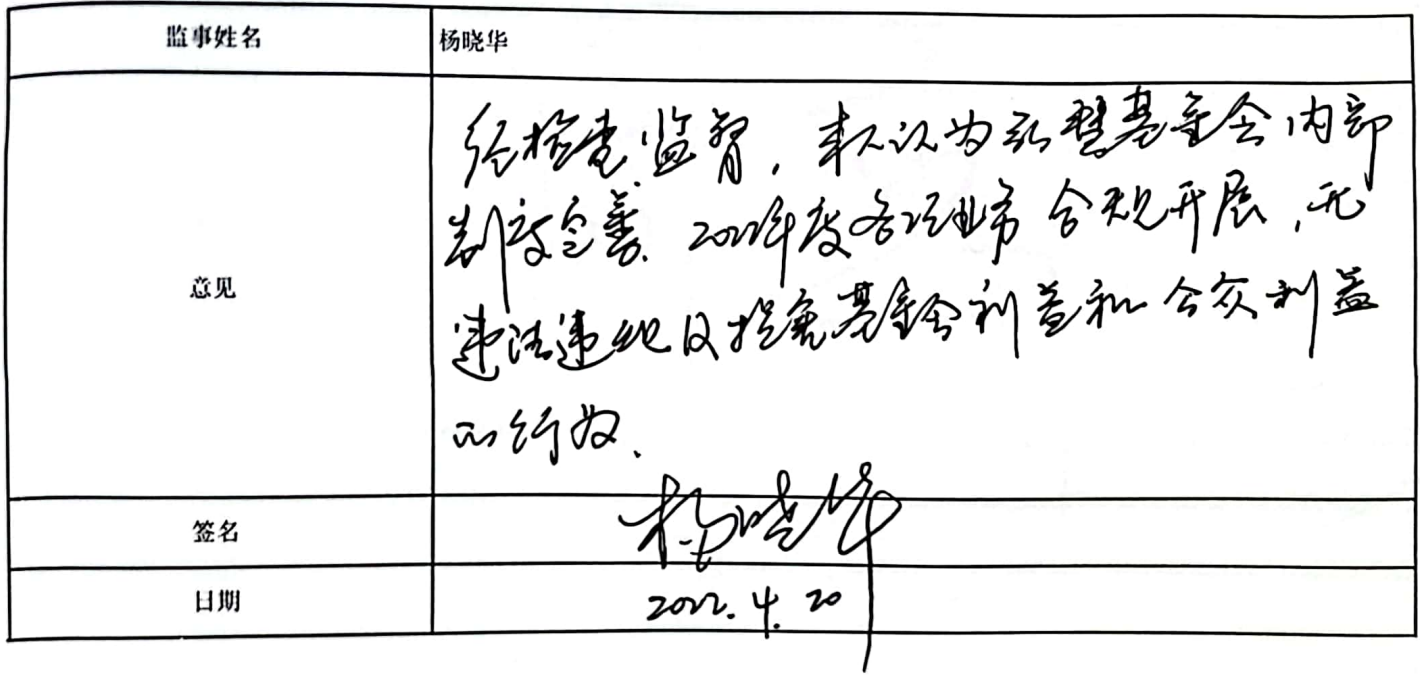 监事姓名
杨晓华
意见
经检查监督，本人认为慧基金会内部
制度完善、2022年度各项业务合规开展，无
违法违规及损害基金会利益和公众利益
的行为、
签名
杨晓华
日期
2022.4.20